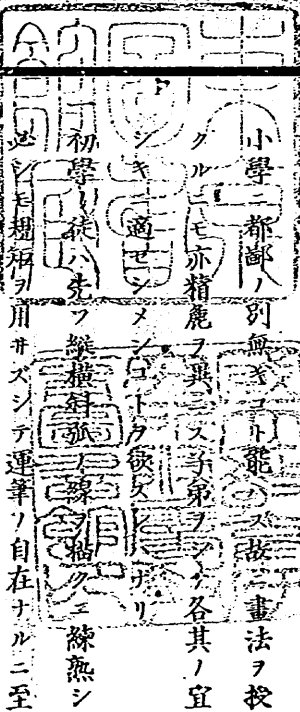 小學ニ都鄙ノ別無キコト能ハス故ニ畫法ヲ授
クルニモ亦精麁ヲ異ニス子弟ヲシテ各其ノ宜
シキニ適セシメンコトヲ欲スレハナリ
初學ノ徒ハ先ツ縱橫斜弧ノ線ヲ描クニ練熟シ
必シモ規矩ヲ用サズシテ運筆ノ自在ナルニ至